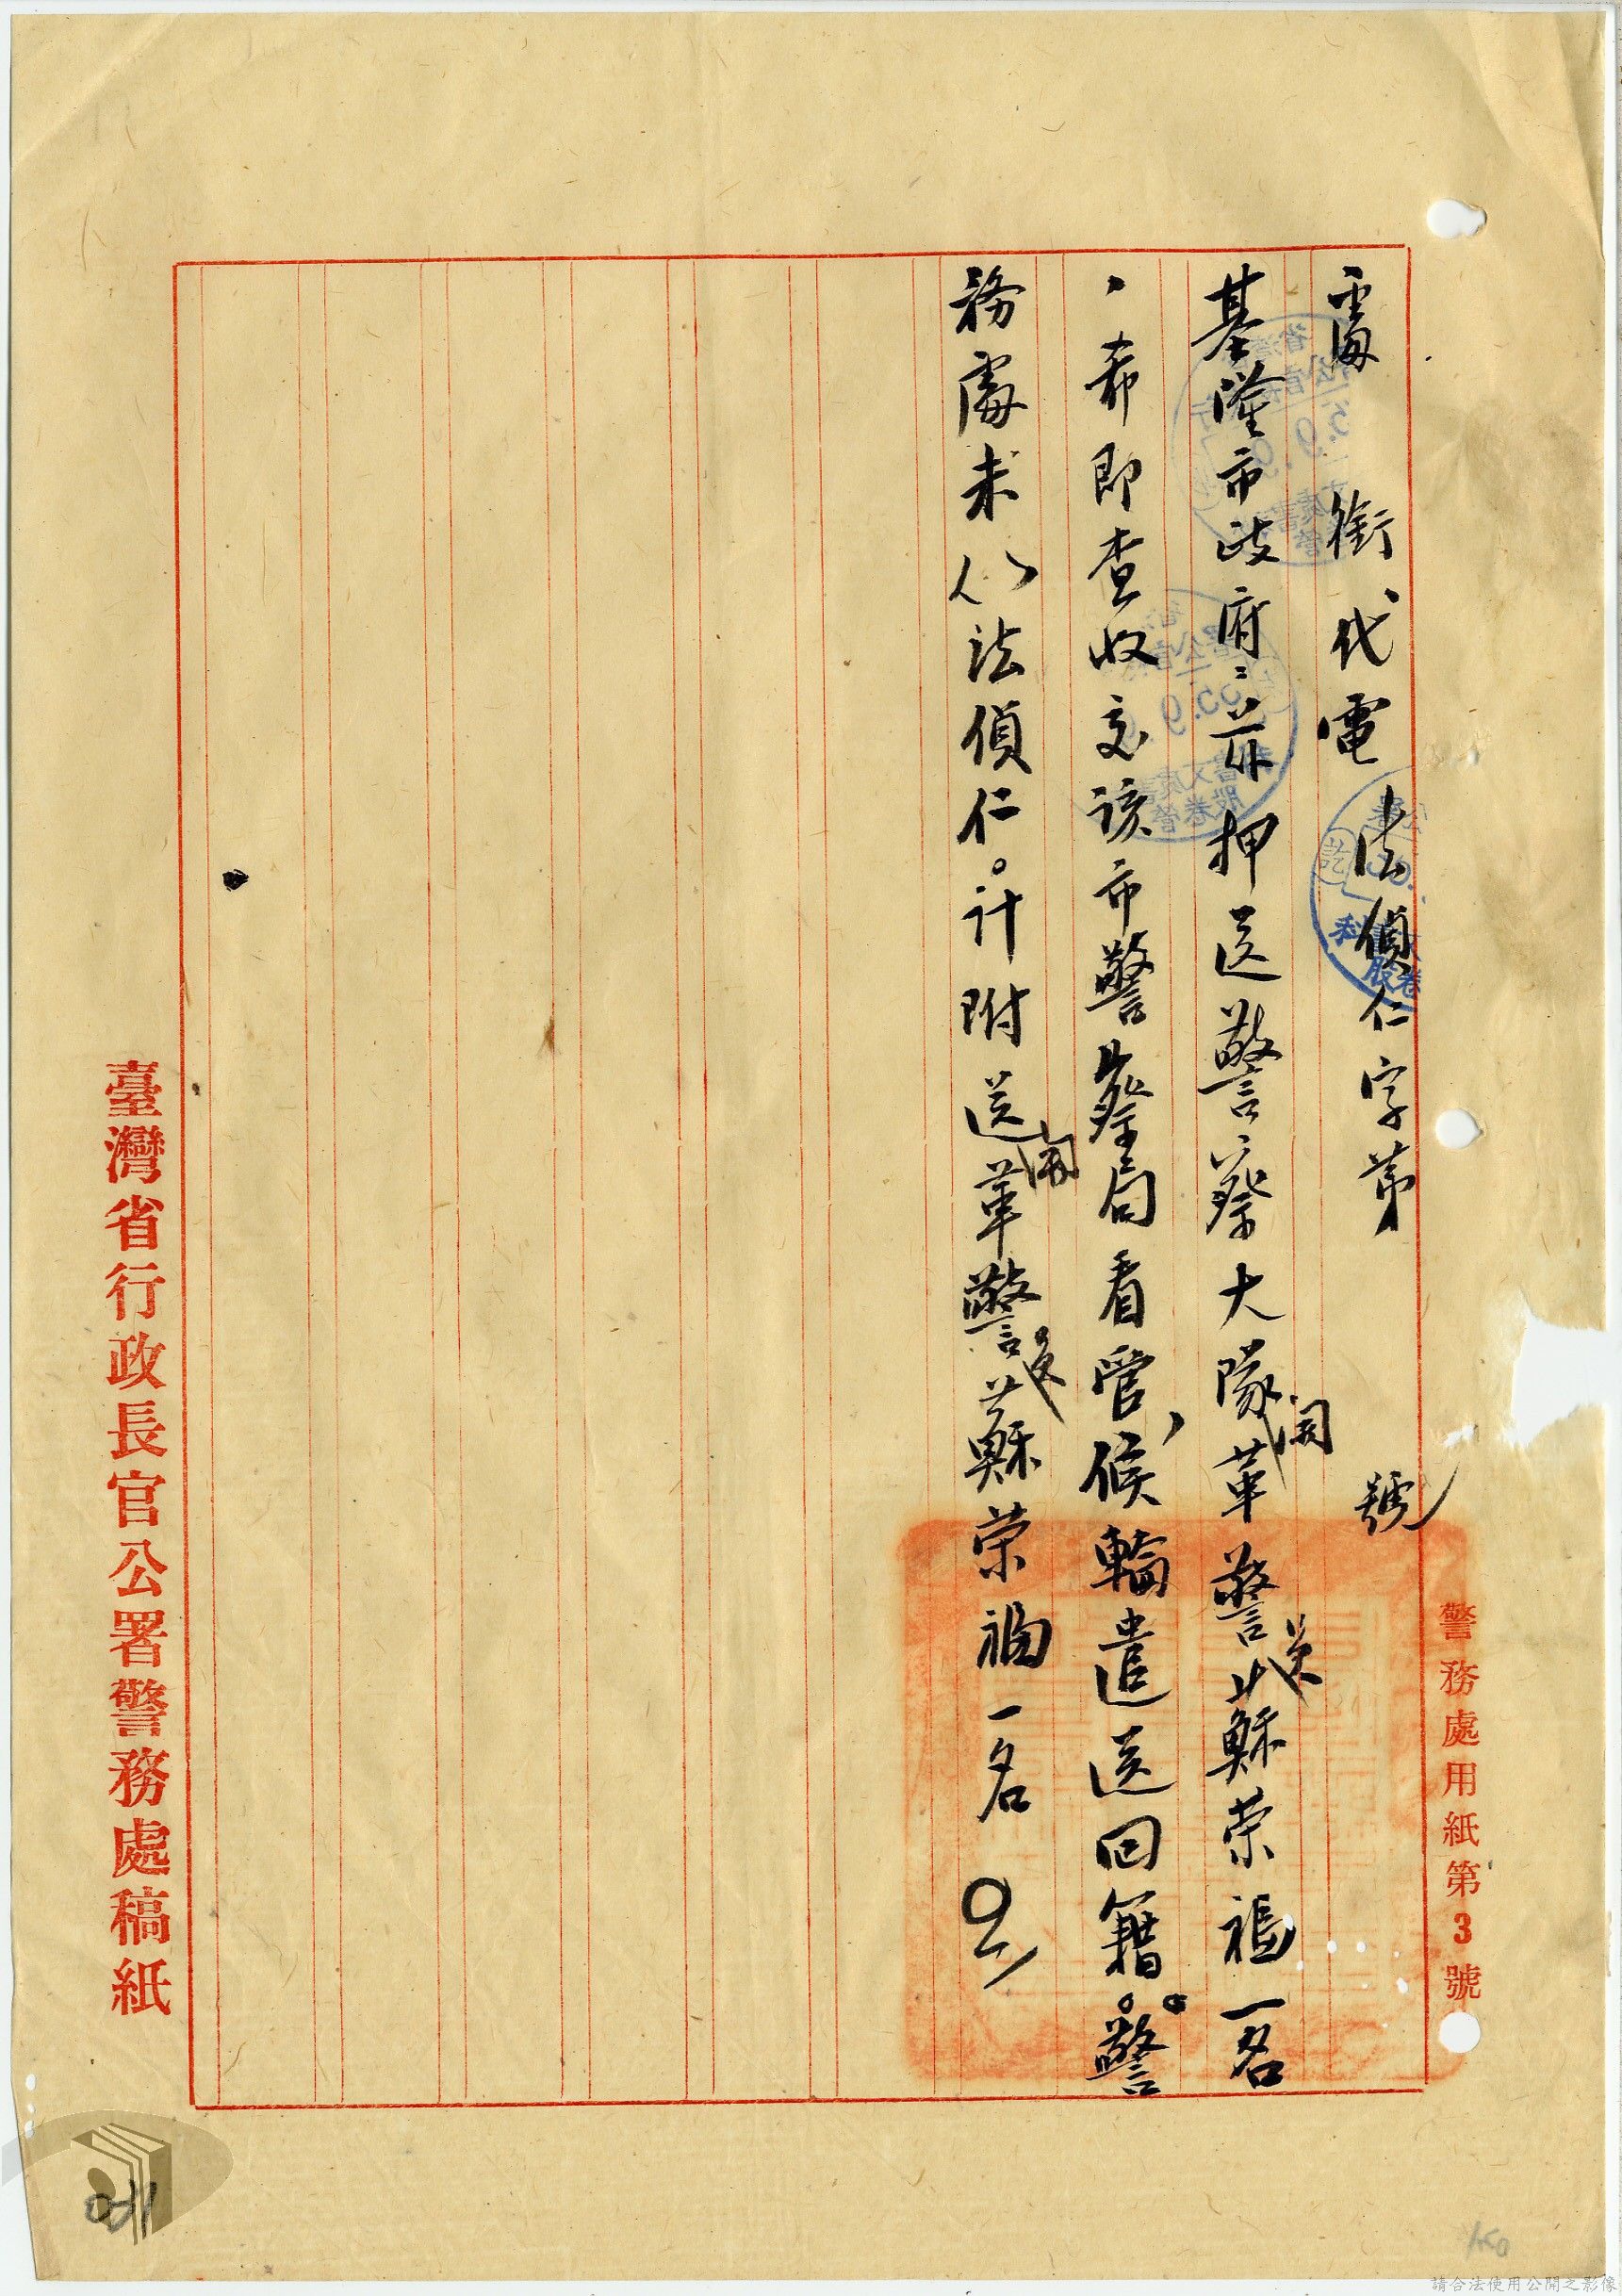 警務處用紙第3號
銜代電 法偵仁字第 號
基隆市政府：茲押送警察大隊開革警 蘇荣福一名
，希即查收交該市警察局看管，候輪遣送回籍。警
務處未 法偵仁。計附送開革警 蘇荣福一名
臺灣省行政長官公署警務處稿紙
150
請合法使用公開之影像